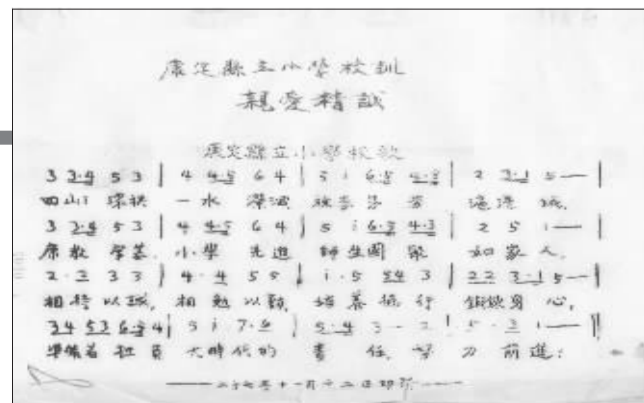 康定縣立小學校訓
親愛精誠
康定縣立小學校歌
3 3·4 5 3 | 4 4·5 6 4 | 5 i 6·5 4·3 | 2 3·1 5— |
四山環拱 一水瀠洄 桃李芬芳 滿 城.
3 3·4 5 3 | 4 4·5 6 4 | 5 i 6·5 4·3 | 2 5 1— |
康 小學先進 師生團聚 如家人.
2·2 3 3 | 4·4 5 5 | i·5 54 3 | 22 3·1 5— |
相待以誠, 相勉以勤, 培養德行 鍛鍊身心,
34 53 6·5 4 | 5 i 7·6 | 5·4 3— 2 | 5·2 1— ||
準備着担負 大時代的 責任, 努力前進!
十一月十二日